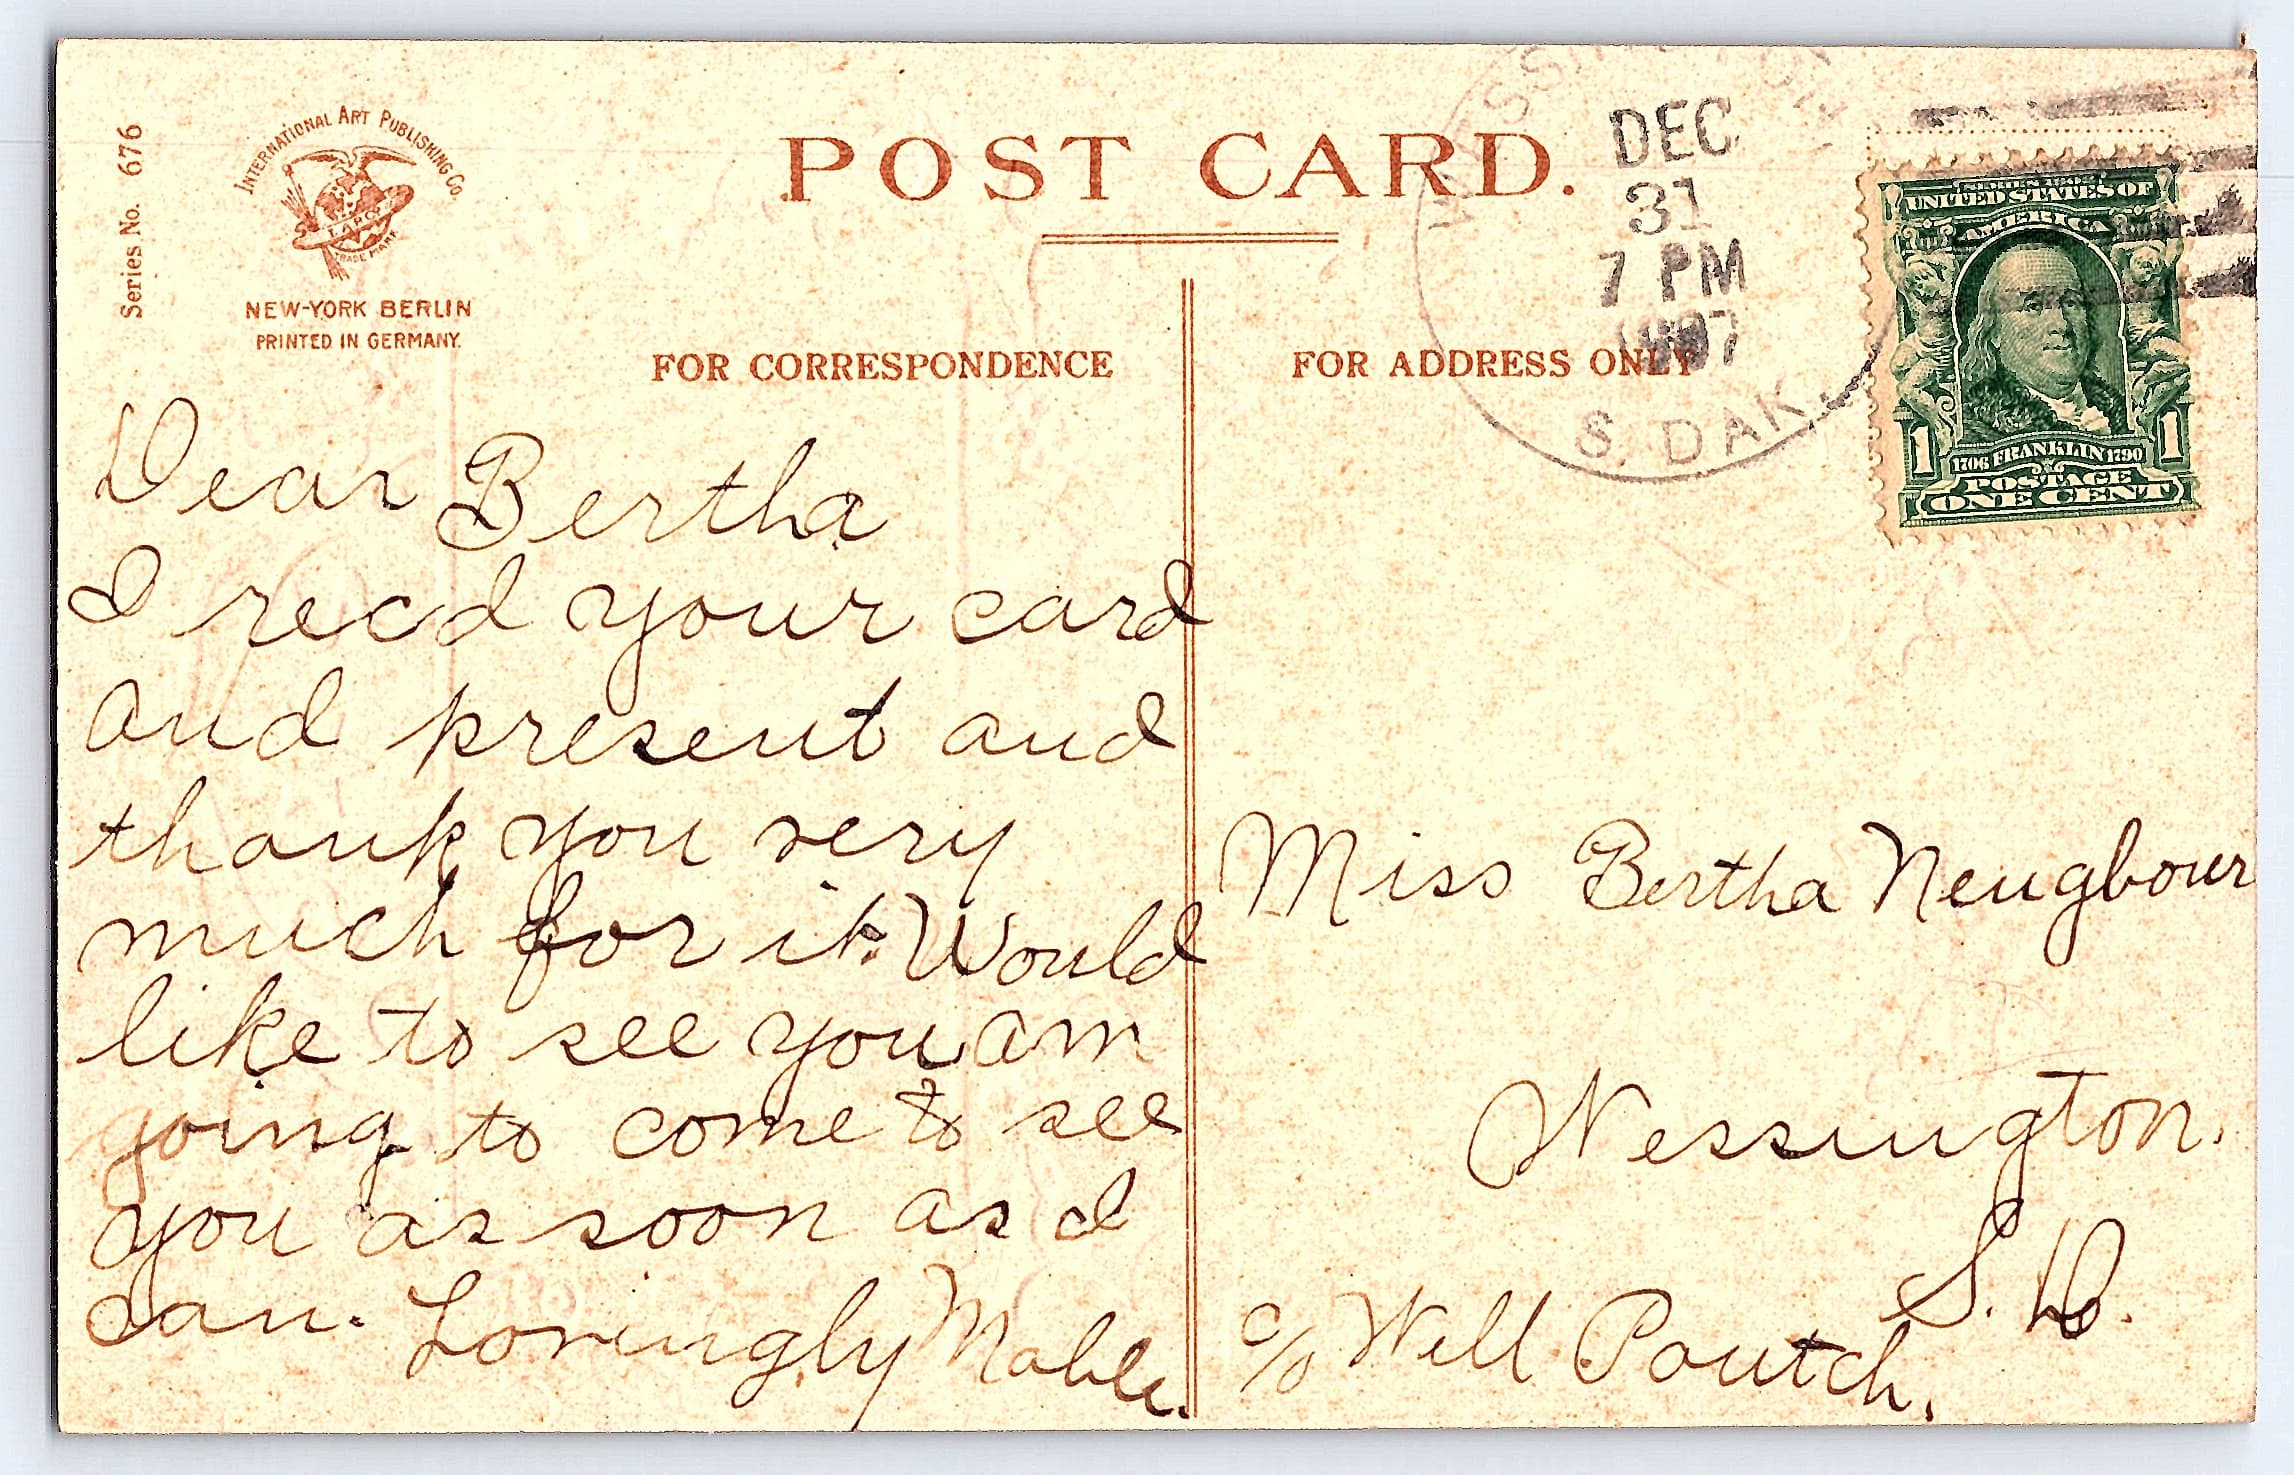 Series No. 676
INTERNATIONAL ART PUBLISHING Co.
TRADE MARK
NEW-YORK BERLIN
PRINTED IN GERMANY.
POST CARD.
DEC
31
7 PM
S. DAK.
SERIES 1902
UNITED STATES OF
AMERICA
1706 FRANKLIN 1790
1 1
POSTAGE
ONE CENT
FOR CORRESPONDENCE
FOR ADDRESS ONLY
Dear Bertha
I recd your card
and present and
thank you very
much for it. Would
like to see you am
going to come to see
you as soon as I
can. Lovingly Mable.
Miss Bertha Neugbour
Wessington.
S. D.
c/o Will Poutch.